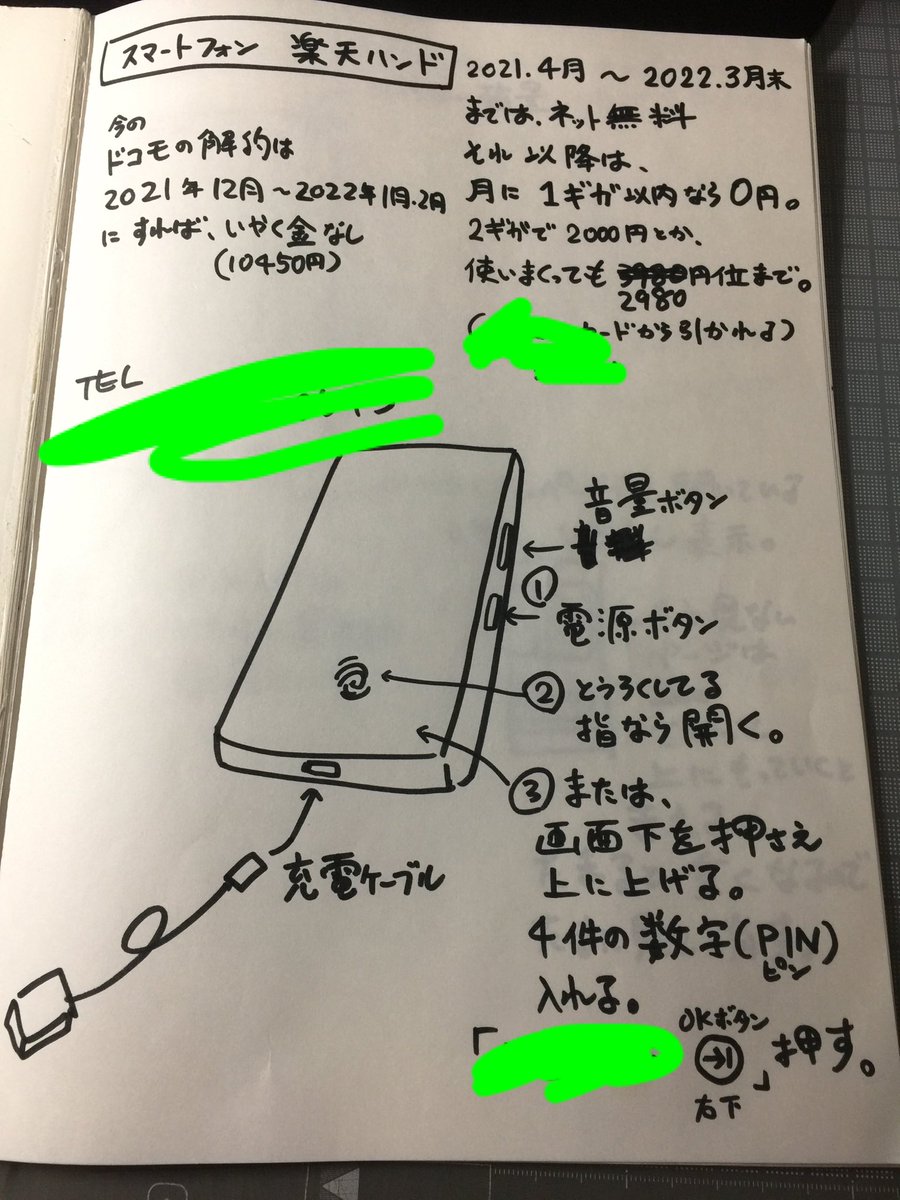 スマートフォン 楽天ハンド
今の
ドコモの解約は
2021年12月～2022年1月.2月
にすれば、いやく金なし
(10450円)
2021.4月 ～ 2022.3月末
までは、ネット無料
それ以降は、
月に1ギガ以内なら0円。
2ギガで2000円とか、
使いまくっても3980円位まで。
2980
ードから引かれる)
TEL
音量ボタン
①
電源ボタン
②とうろくしてる
指なら開く。
③または、
画面下を押さえ
上に上げる。
4件の数字(PIN)
ピン
入れる。
OKボタン
「 」押す。
右下
充電ケーブル